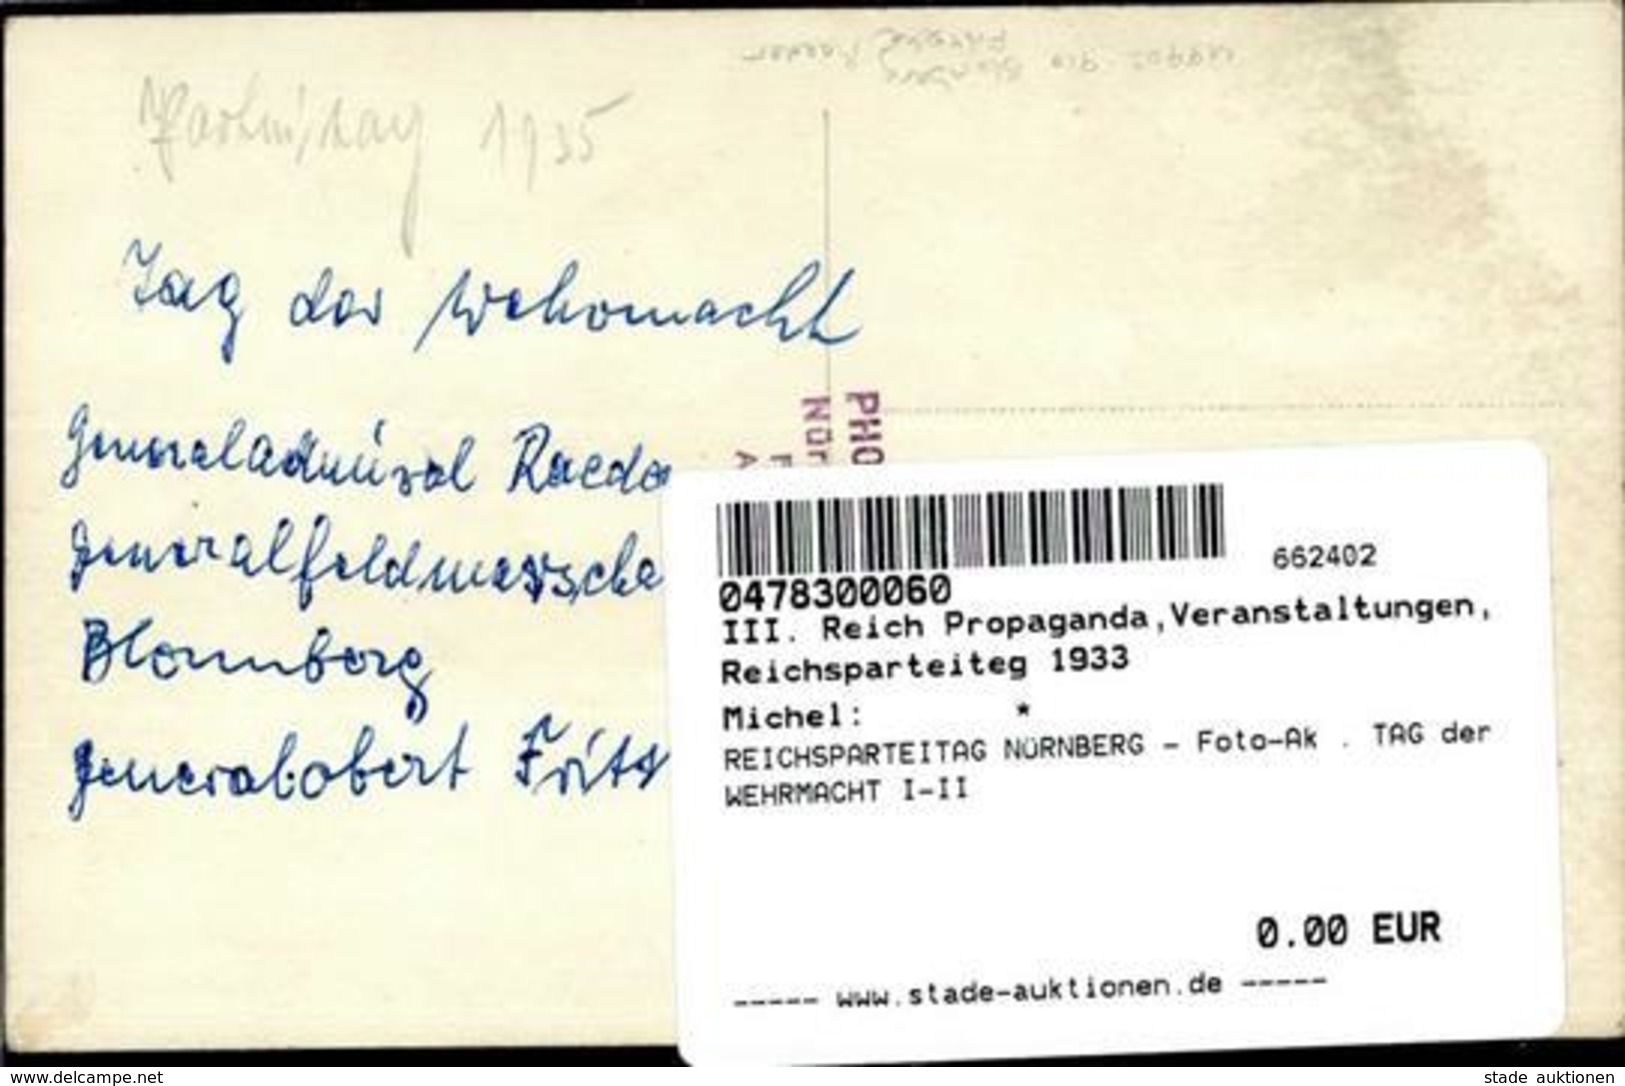 Parteitag 1935
Tag der Wehrmacht
Generaladmiral Raeder
Generalfeldmarscha
Blomberg
Generaloberst Frits
PHO
NÜR
F
A
0478300060
662402
III. Reich Propaganda,Veranstaltungen,
Reichsparteiteg 1933
Michel: *
REICHSPARTEITAG NÜRNBERG - Foto-Ak . TAG der
WEHRMACHT I-II
0.00 EUR
----- www.stade-auktionen.de -----
www.delcampe.net
stade auktionen